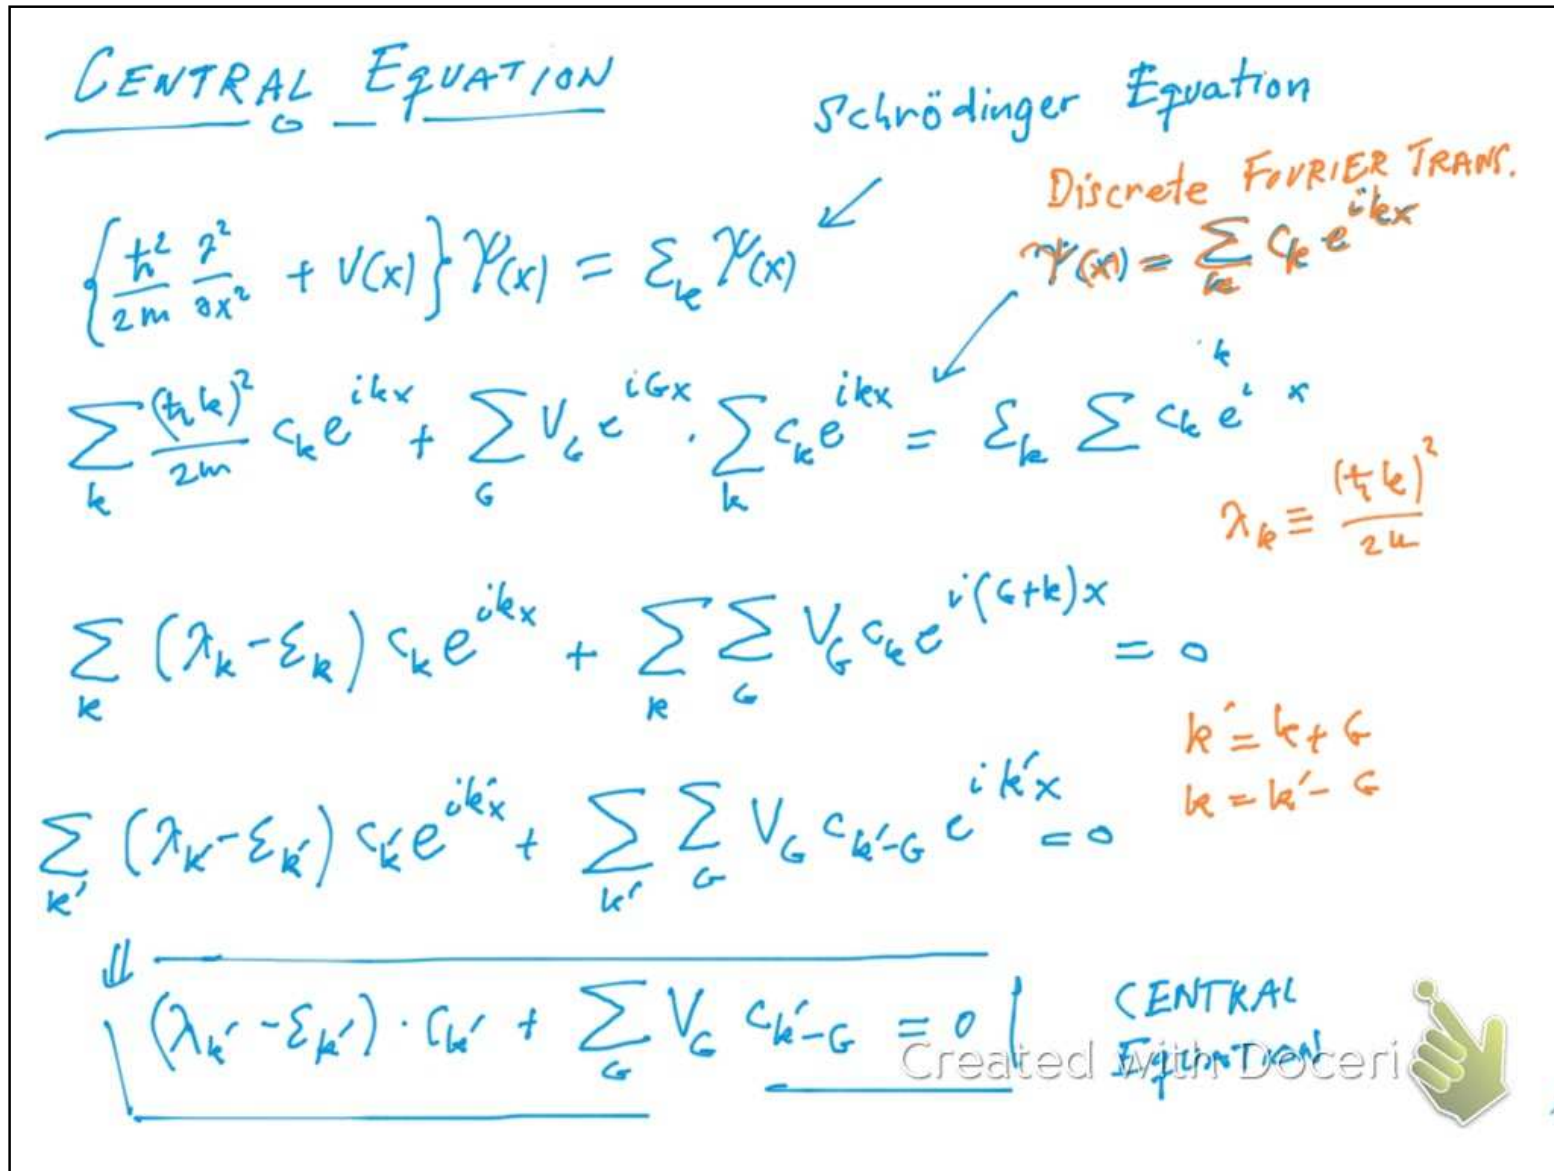 CENTRAL EQUATION
Schrödinger Equation
Discrete FOURIER TRANS.
{ħ²/2m ∂²/∂x² + V(x)} Ψ(x) = Ɛ_k Ψ(x)
Ψ(x) = Σ_k c_k e^{ikx}
Σ_k (ħk)²/2m c_k e^{ikx} + Σ_G V_G e^{iGx} · Σ_k c_k e^{ikx} = Ɛ_k Σ c_k e^{i k x}
λ_k ≡ (ħk)²/2m
Σ_k (λ_k - Ɛ_k) c_k e^{ikx} + Σ_k Σ_G V_G c_k e^{i(G+k)x} = 0
k' = k + G
k = k' - G
Σ_k' (λ_k' - Ɛ_k') c_k' e^{ik'x} + Σ_k' Σ_G V_G c_{k'-G} e^{ik'x} = 0
⇓
(λ_k' - Ɛ_k') · c_k' + Σ_G V_G c_{k'-G} = 0
CENTRAL
EQUATION
Created with Doceri